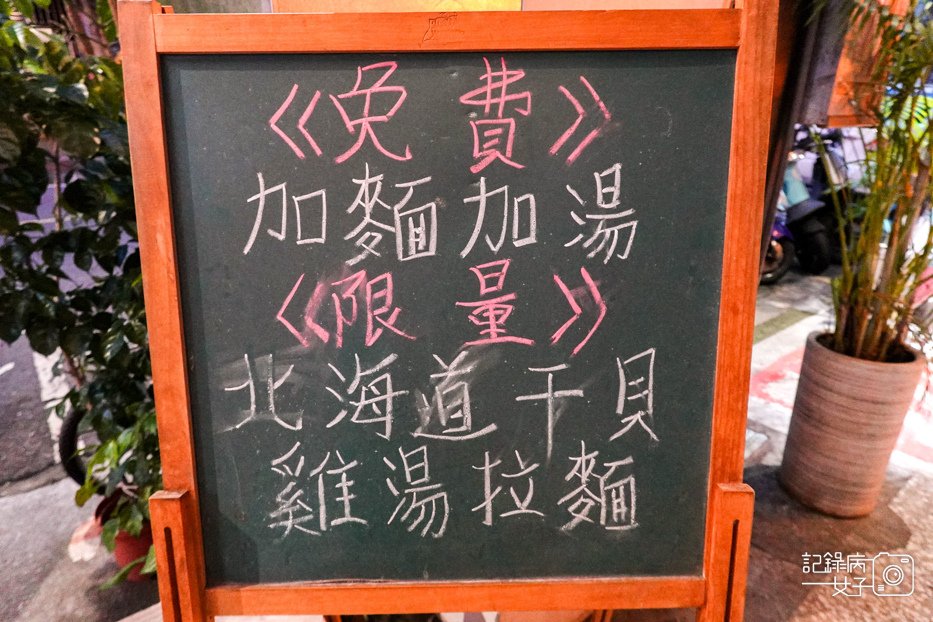 《免費》
加麵加湯
《限量》
北海道干貝
雞湯拉麵
記錄病
女子